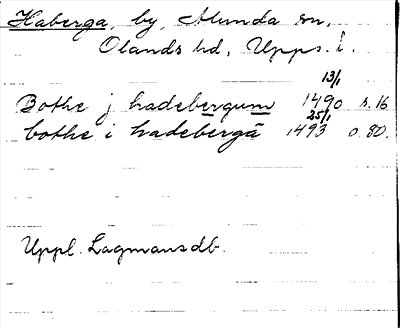 Haberga, by, Alunda sn,
Olands hd, Upps. l.
13/1
Bothe j hadebergum 1490 s. 16
25/1
bothe i hadebergā 1493 o. 80.
Uppl. Lagmansdb.